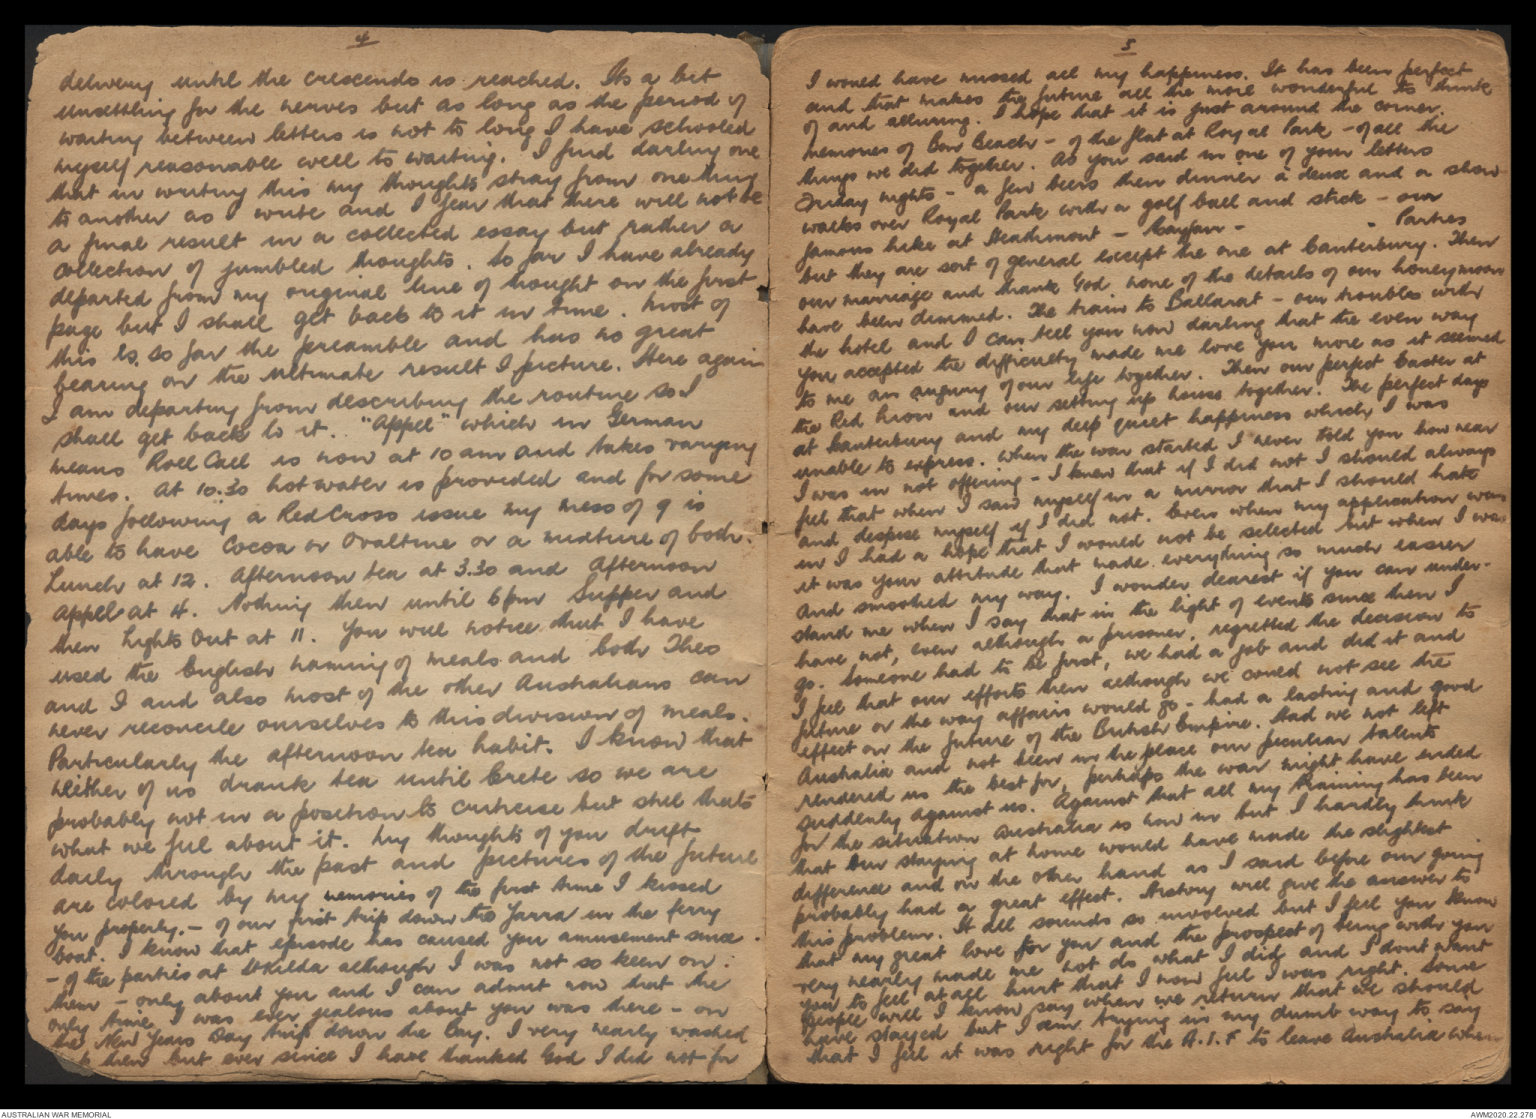 4
delivery until the crescendo is reached. Its a bit
unsettling for the nerves but as long as the period of
waiting between letters is not to long I have schooled
myself reasonable well to waiting. I find darling one
that in writing this my thoughts stray from one thing
to another as I write and I fear that there will not be
a final result in a collected essay but rather a
collection of jumbled thoughts. So far I have already
departed from my original line of thought on the first
page but I shall get back to it in time. Most of
this is so far the preamble and has no great
bearing on the ultimate result I picture. Here again
I am departing from describing the routine so I
shall get back to it. "Appel" which in German
means Roll Call is now at 10 am and takes varying
times. At 10.30 hot water is provided and for some
days following a Red Cross issue my mess of 9 is
able to have Cocoa or Ovaltine or a mixture of both.
Lunch at 12. Afternoon tea at 3.30 and afternoon
appel at 4. Nothing then until 6pm Supper and
then Lights Out at 11. You will notice that I have
used the English naming of meals and both Theo
and I and also most of the other Australians can
never reconcile ourselves to this division of meals.
Particularly the afternoon tea habit. I know that
neither of us drank tea until Crete so we are
probably not in a position to criticise but still thats
what we feel about it. My thoughts of you drift
daily through the past and pictures of the future
are colored by my memories of the first time I kissed
you properly. - of our first trip down the Yarra in the ferry
boat. I know that episode has caused you amusement since.
- of the parties at St Kilda although I was not so keen on
them - only about you and I can admit now that the
only time I was ever jealous about you was there - on
the New Years Day trip down the Bay. I very nearly washed
them but ever since I have thanked God I did not for
5
I would have missed all my happiness. It has been perfect
and that makes the future all the more wonderful to think
of and alluring. I hope that it is just around the corner.
memories of Bon Beach - of the flat at Royal Park - of all the
things we did together. As you said in one of your letters
Friday nights - a few beers then dinner a deux and a show
walks over Royal Park with a golf ball and stick - our
famous hike at Heathmont - Mayfair - - Parties
but they are sort of general except the one at Canterbury. Then
our marriage and thank God none of the details of our honeymoon
have been dimmed. The train to Ballarat - our troubles with
the hotel and I can tell you now darling that the even way
you accepted the difficulty made me love you more as it seemed
to me an augury of our life together. Then our perfect Easter at
the Red Lion and our setting up house together. The perfect days
at Canterbury and my deep quiet happiness which I was
unable to express. When the war started I never told you how near
I was in not offering - I knew that if I did not I should always
feel that when I saw myself in a mirror that I should hate
and despise myself if I did not. Even when my application was
in I had a hope that I would not be selected but when I was
it was your attitude that made everything so much easier
and smoothed my way. I wonder dearest if you can under-
stand me when I say that in the light of events since then I
have not, even although a prisoner, regretted the decision to
go. Someone had to be first, we had a job and did it and
I feel that our efforts then although we could not see the
future or the way affairs would go - had a lasting and good
effect on the future of the British Empire. Had we not left
Australia and not been in the place our peculiar talents
rendered us the best for, perhaps the war might have ended
suddenly against us. Against that all my training has been
for the situation Australia is now in but I hardly think
that our staying at home would have made the slightest
difference and on the other hand as I said before our going
probably had a great effect. History will give the answer to
this problem. It all sounds so involved but I feel you know
that my great love for you and the prospect of being with you
very nearly made me not do what I did and I dont want
you to feel at all hurt that I now feel I was right. Some
people will I know say when we return that we should
have stayed but I am trying in my dumb way to say
that I feel it was right for the A.I.F to leave Australia when
AUSTRALIAN WAR MEMORIAL
AWM2020.22.278